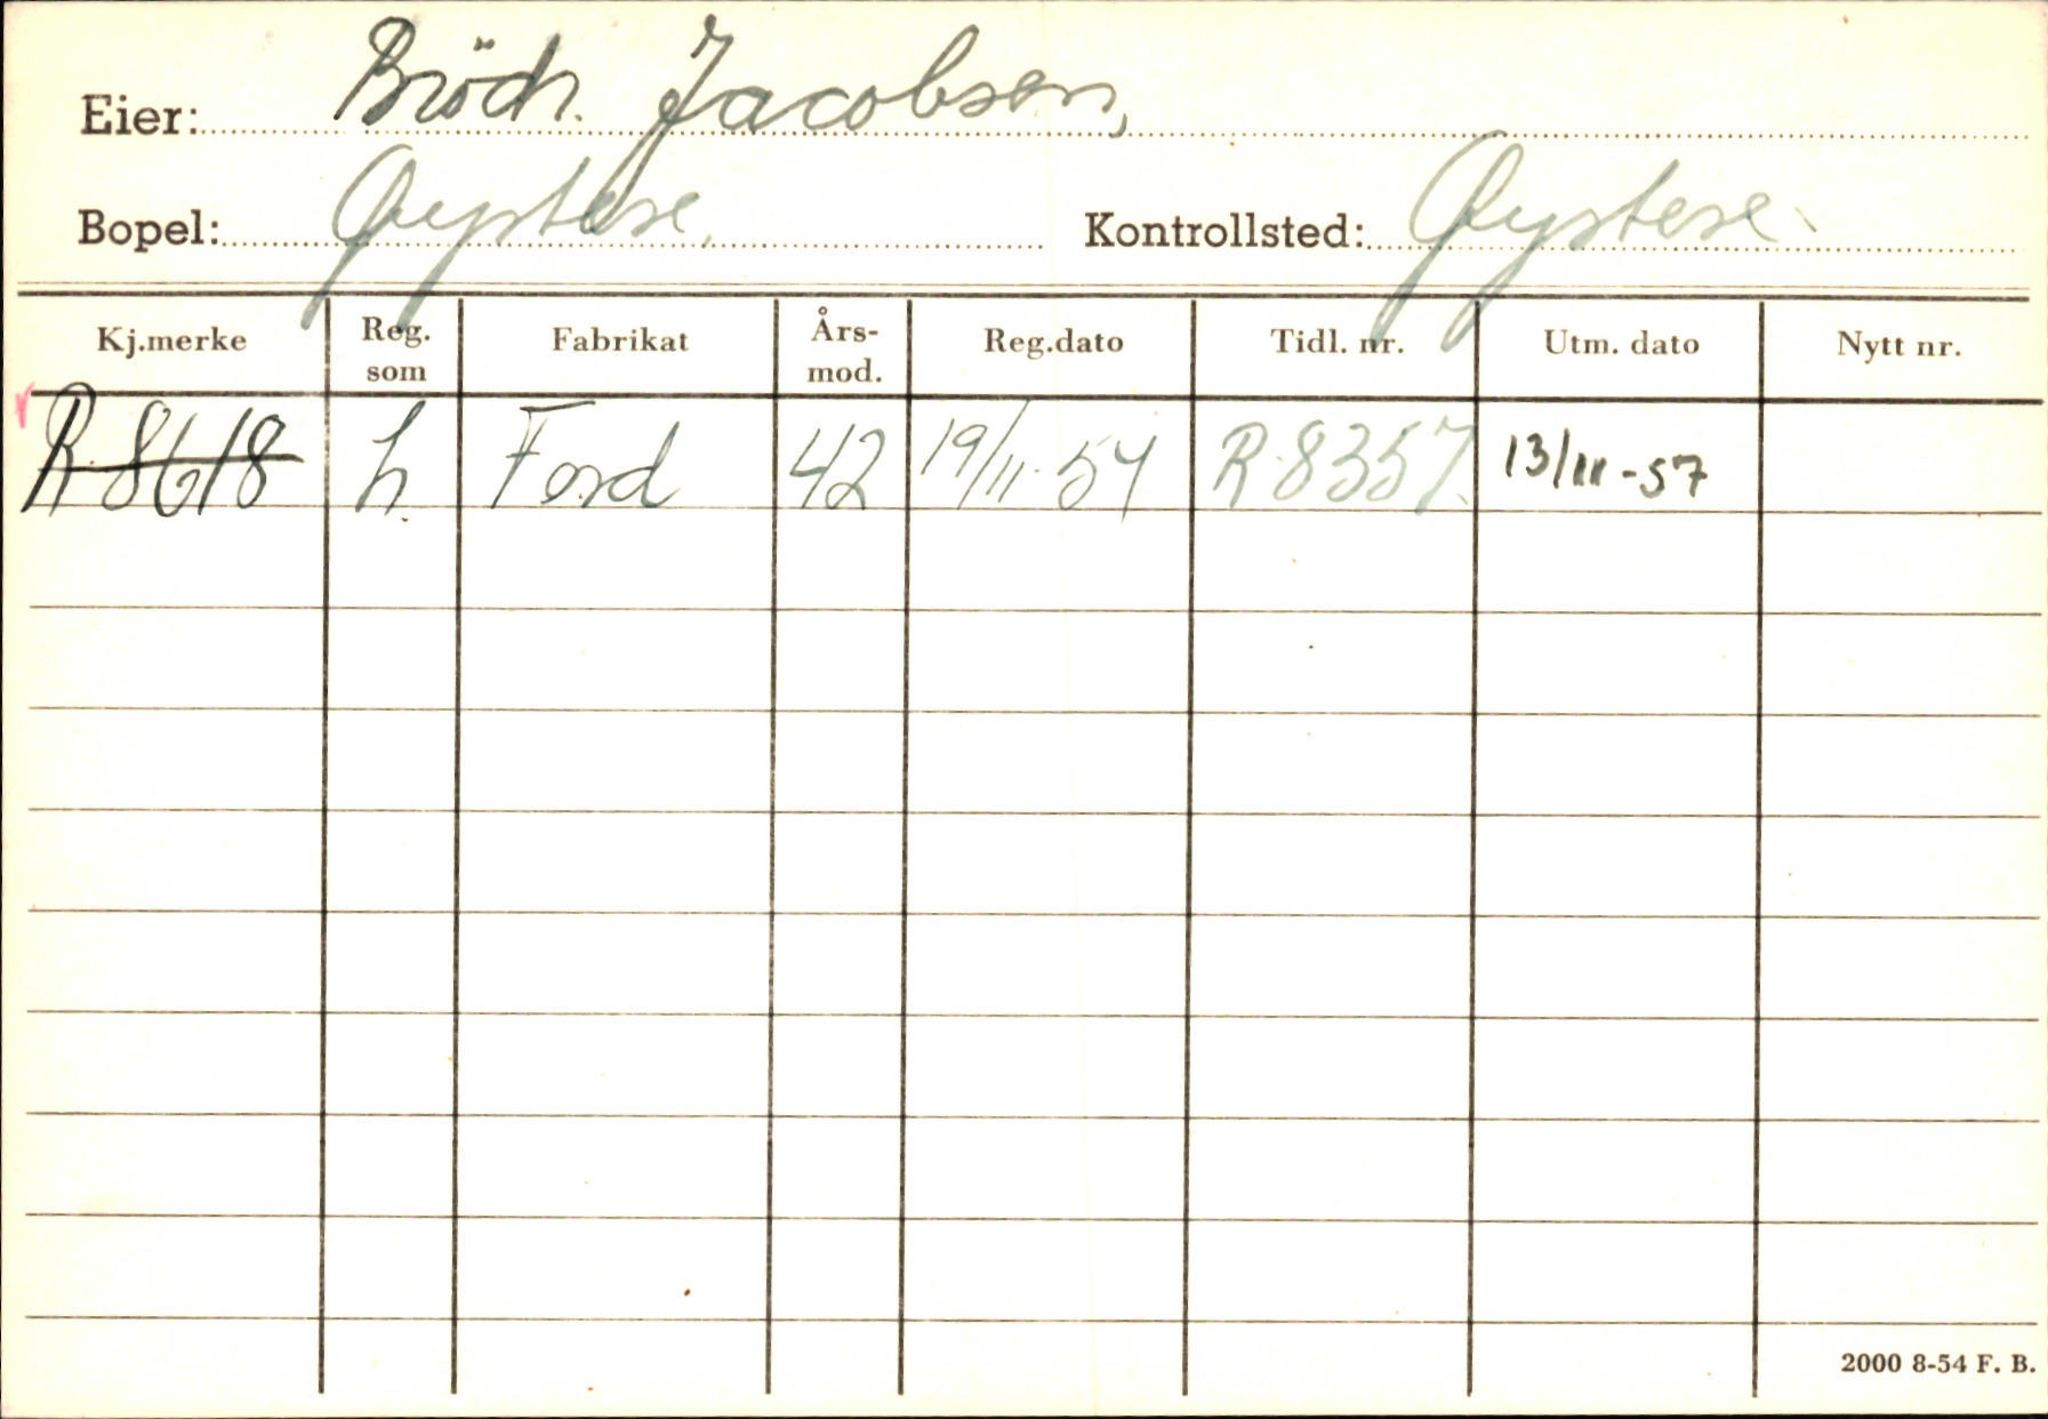 Eier: Bröd. Jacobsen,
Bopel: Øystese. Kontrollsted: Øystese.
Kj.merke Reg. som Fabrikat Års- mod. Reg.dato Tidl. nr. Utm. dato Nytt nr.
R-8618 L. Ford 42 19/11-54 R-8357. 13/III-57
2000 8-54 F. B.